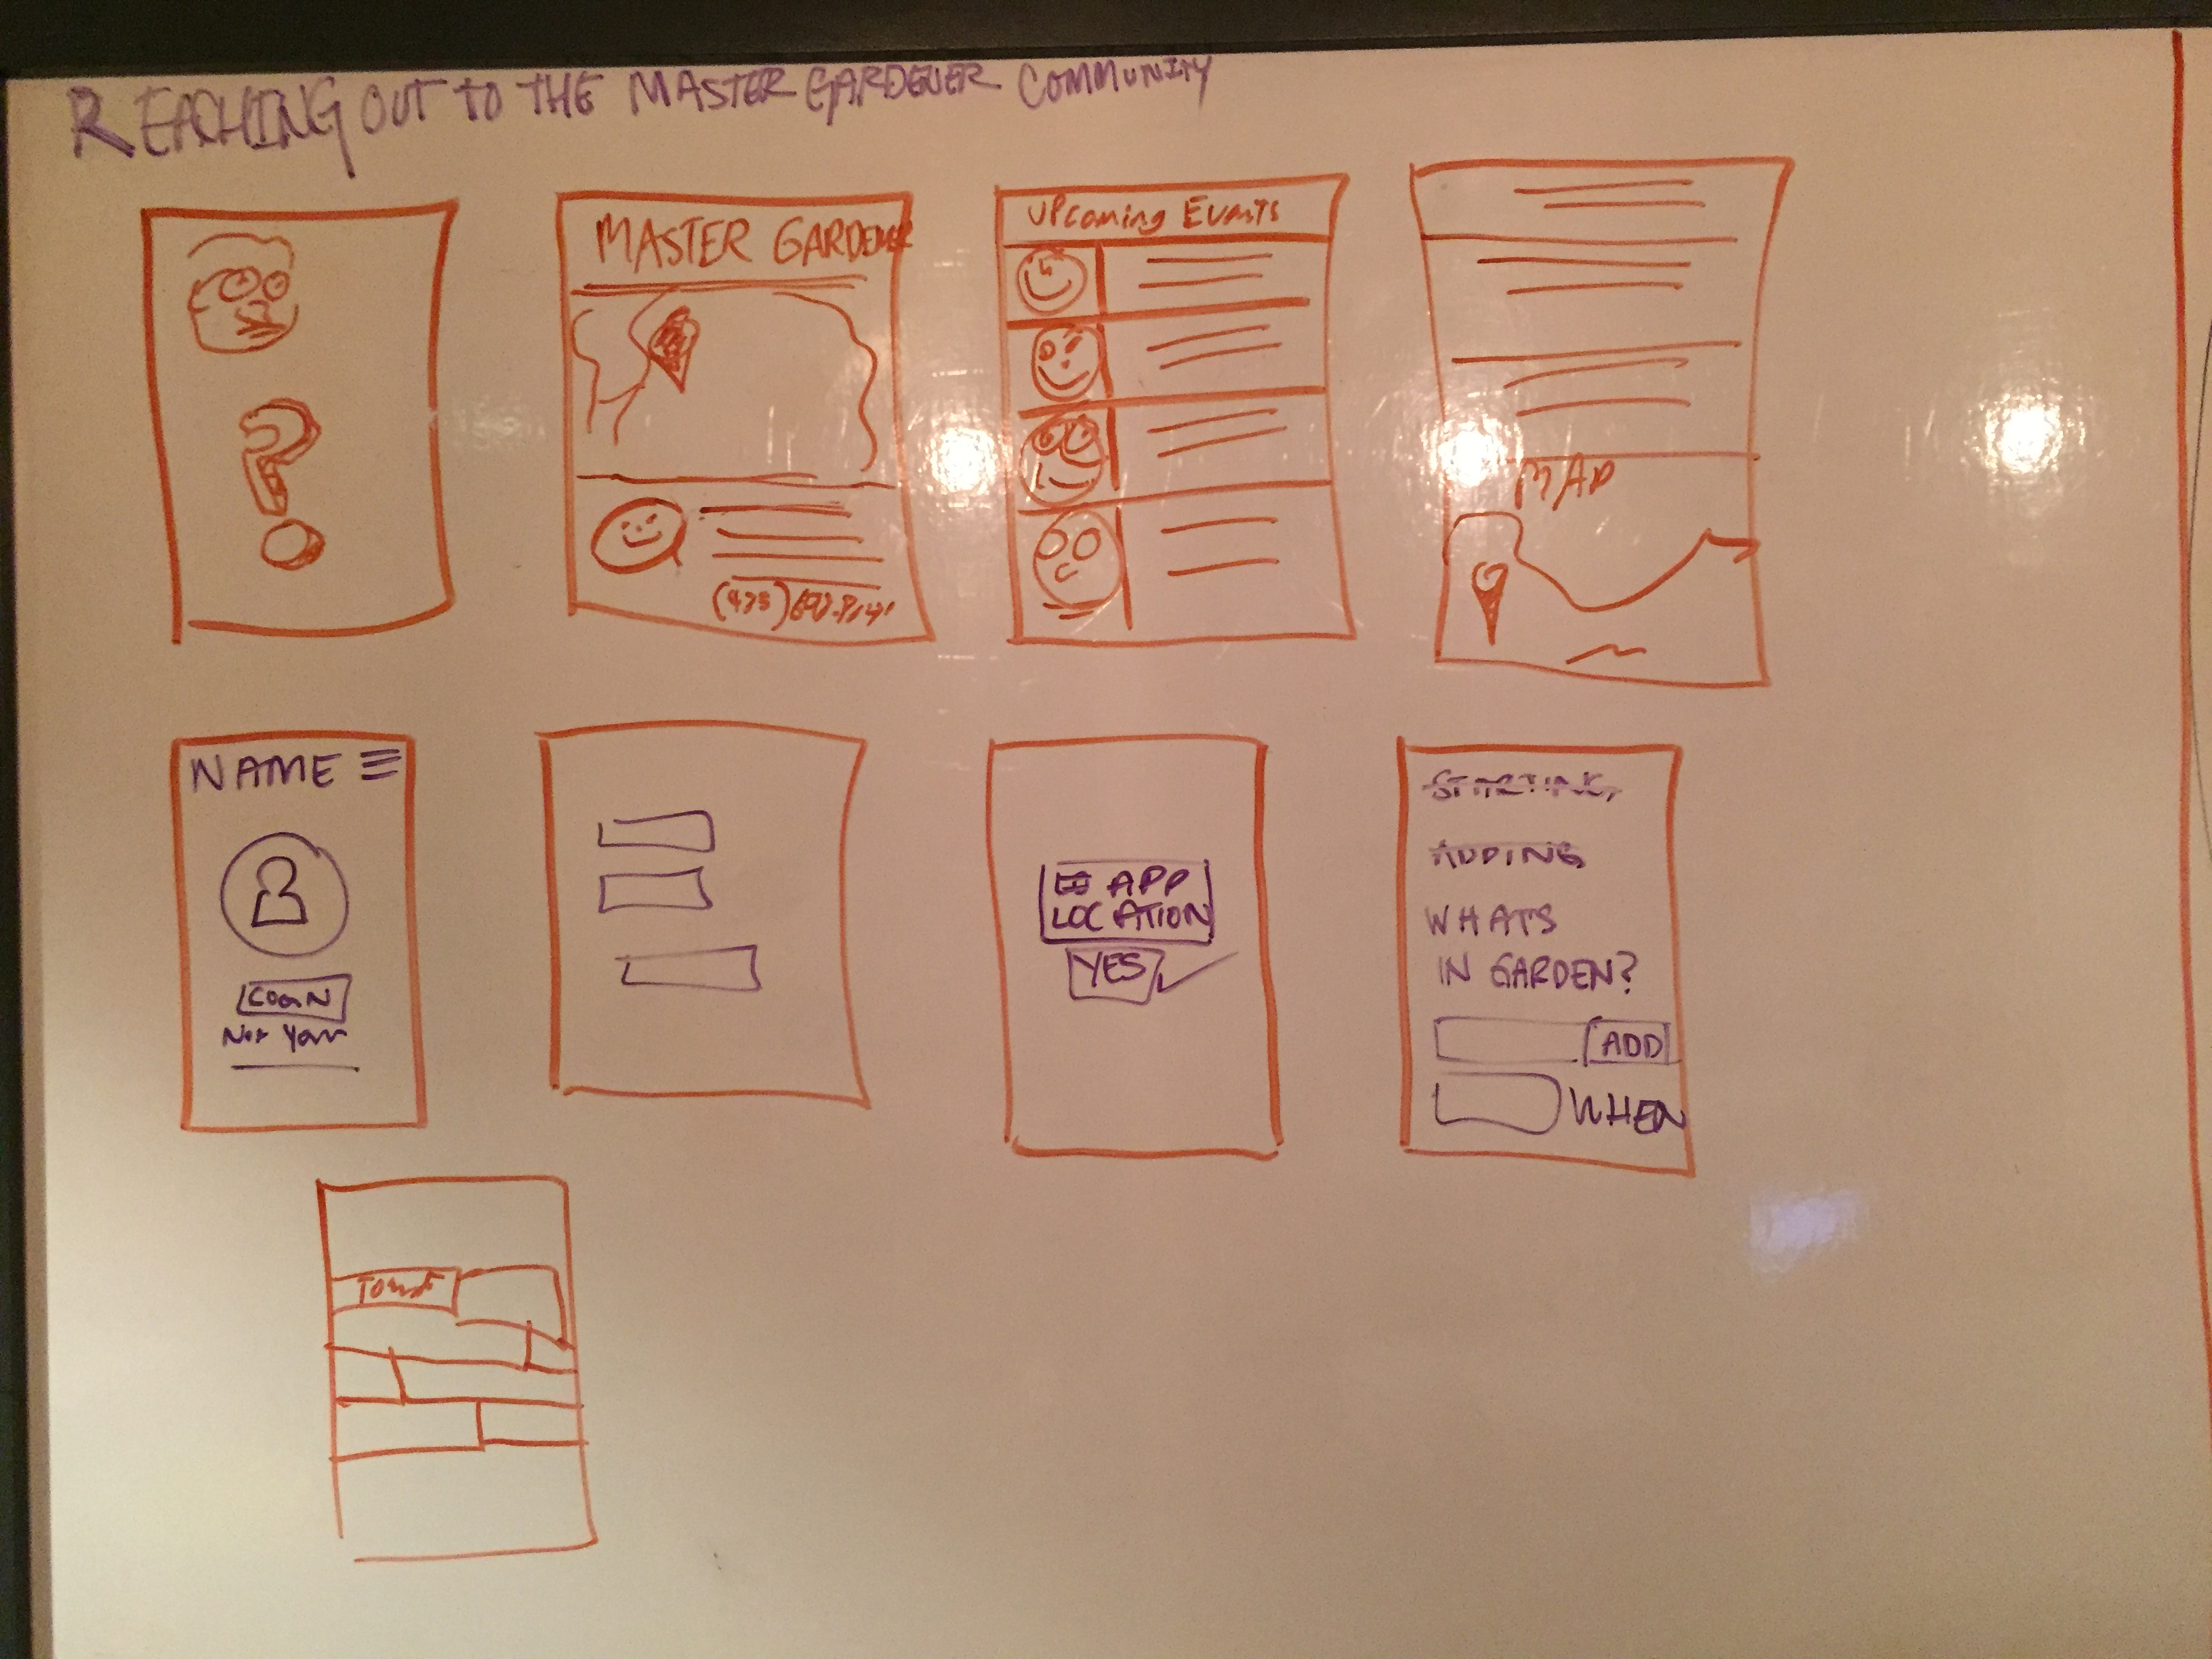 REACHING OUT TO THE MASTER GARDENER COMMUNITY
MASTER GARDENER
UPcoming Events
MAP
NAME
LOGIN
Not You
APP
LOCATION
YES
STARTING
ADDING
WHATS
IN GARDEN?
ADD
WHEN